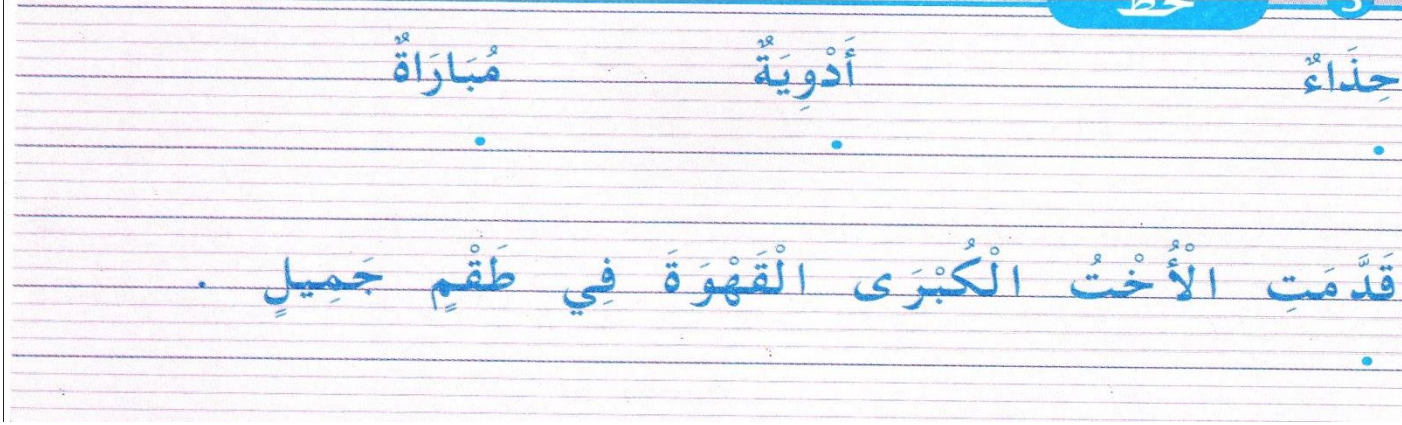 خط 3
حِذَاءٌ أَدْوِيَةٌ مُبَارَاةٌ
قَدَّمَتِ الْأُخْتُ الْكُبْرَى الْقَهْوَةَ فِي طَقْمٍ جَمِيلٍ .